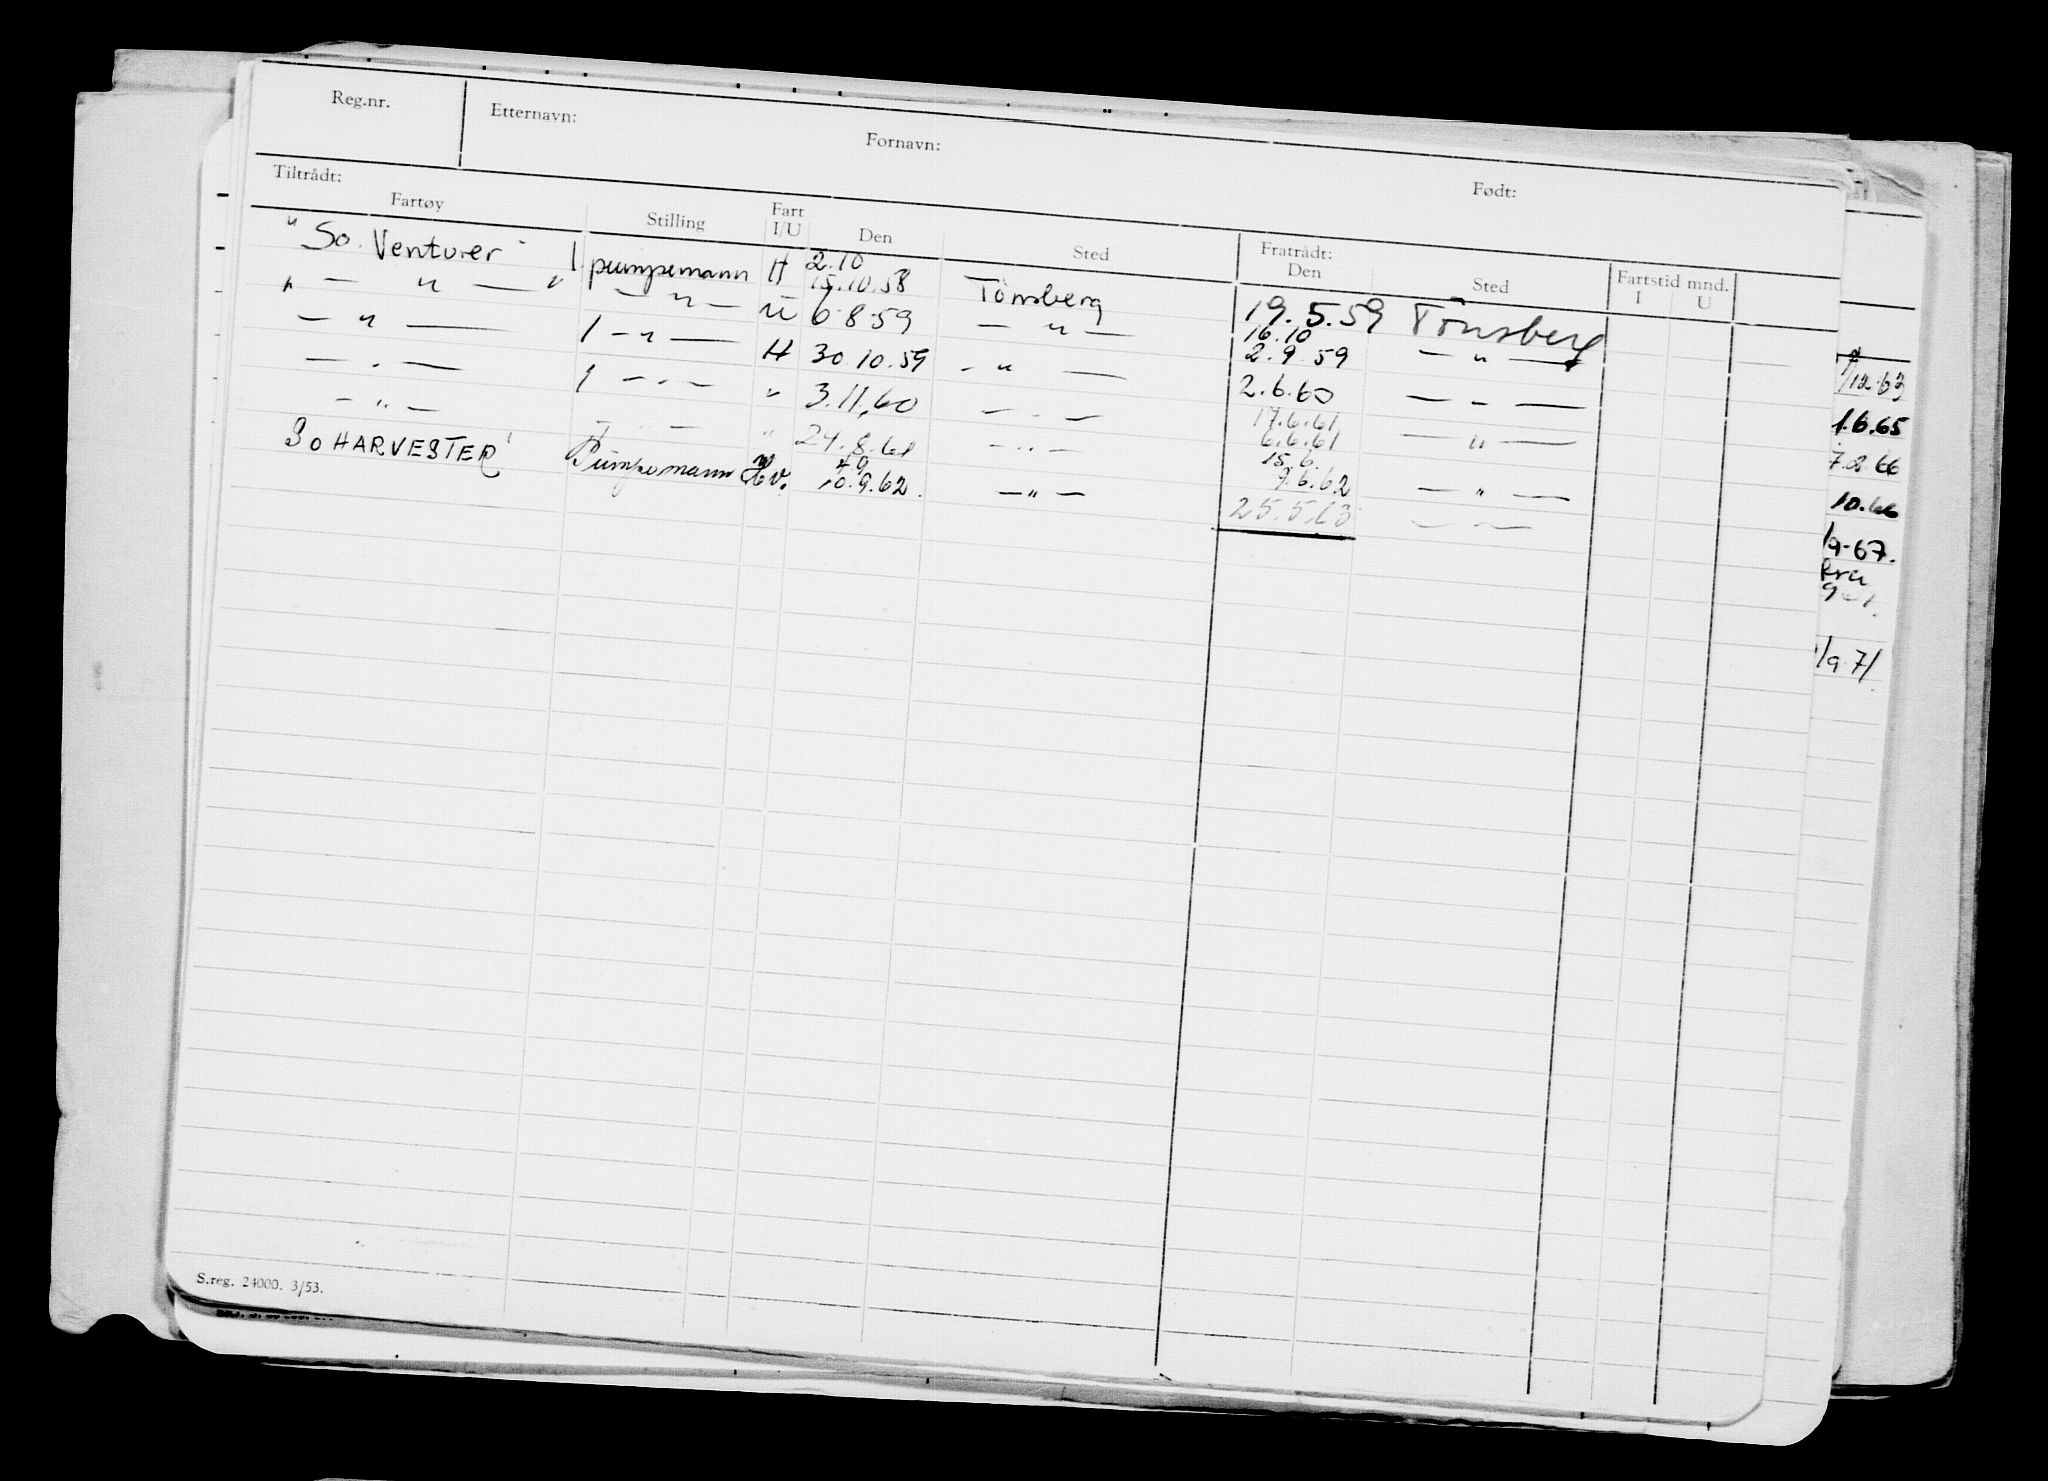 Reg.nr. Etternavn: Fornavn: Født:
Tiltrådt: Fratrådt:
Fartøy Stilling Fart I/U Den Sted Den Sted Fartstid mnd. I U
"So. Venturer" 1. pumpemann H 2.10 15.10.58 Tönsberg 19.5.59 Tönsberg
" — " — " — " — U 6.8.59 — " — 16.10 2.9.59 — " —
— " — 1 — " — H 30.10.59 - " — 2.6.60 — " —
— . — 1 — . — " 3.11.60 — . — 17.6.61 6.6.61 — " —
— " — — . — " 24.8.61 — . . — 15.6. 9.6.62 — " —
So HARVESTER' Pumpemann Hv. 10.9.62. — " — 25.5.63 — " —
/12.63
1.6.65
7.2.66
10.66
/9-67.
/9.71
S.reg. 24000. 3/53.